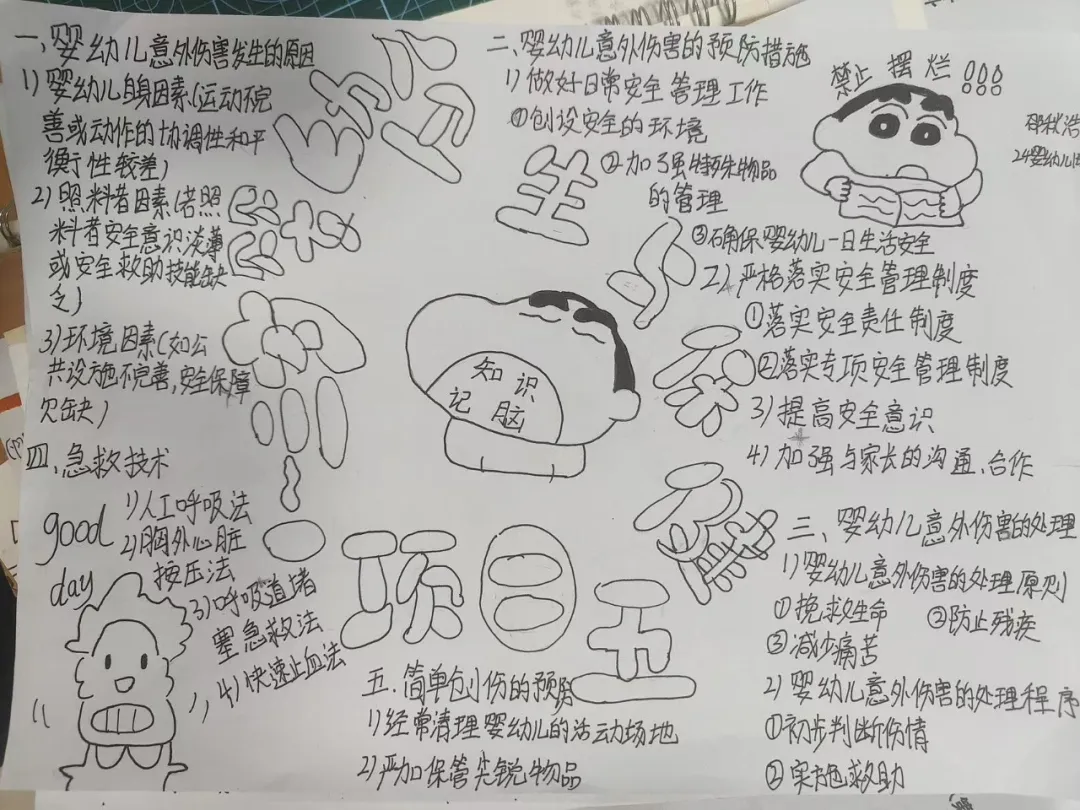 一、婴幼儿意外伤害发生的原因
1)婴幼儿自身因素(运动不完
善或动作的协调性和平
衡性较差)
2)照料者因素(若照
料者安全意识淡薄
或安全救助技能缺
乏)
3)环境因素(如公
共设施不完善,安全保障
欠缺)
二、婴幼儿意外伤害的预防措施
1)做好日常安全管理工作
①创设安全的环境
②加强特殊物品
的管理
③确保婴幼儿一日生活安全
2)严格落实安全管理制度
①落实安全责任制度
②落实专项安全管理制度
3)提高安全意识
4)加强与家长的沟通、合作
禁止摆烂
24婴幼儿
知识
记脑
项目五
三、婴幼儿意外伤害的处理
1)婴幼儿意外伤害的处理原则
①挽救生命 ②防止残疾
③减少痛苦
2)婴幼儿意外伤害的处理程序
①初步判断伤情
②实施救助
四、急救技术
1)人工呼吸法
2)胸外心脏
按压法
3)呼吸道堵
塞急救法
4)快速止血法
good
day
五、简单创伤的预防
1)经常清理婴幼儿的活动场地
2)严加保管尖锐物品